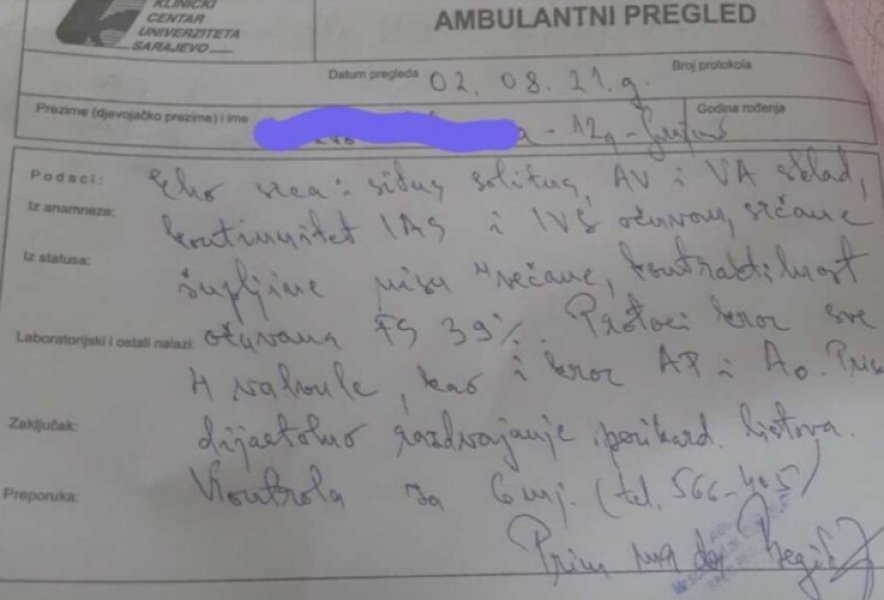 KLINIČKI
CENTAR
UNIVERZITETA
SARAJEVO
AMBULANTNI PREGLED
Datum pregleda 02. 08. 21. g.
Broj protokola
Prezime (djevojačko prezime) i ime
a - 12g -
Godina rođenja
Podaci: Eho srca: situs solitus, AV i VA sklad,
Iz anamneze: kontinuitet IAS i IVS očuvan, srčane
Iz statusa: šupljine nisu uvećane, kontraktilnost
Laboratorijski i ostali nalazi: očuvana FS 39%. Protoci kroz sve
4 valvule, kao i kroz AP i Ao.
Zaključak: dijastolno razdvajanje perikard. listova.
Preporuka: Kontrola za 6 mj. (tel. 566-405)
Prim dr Begić